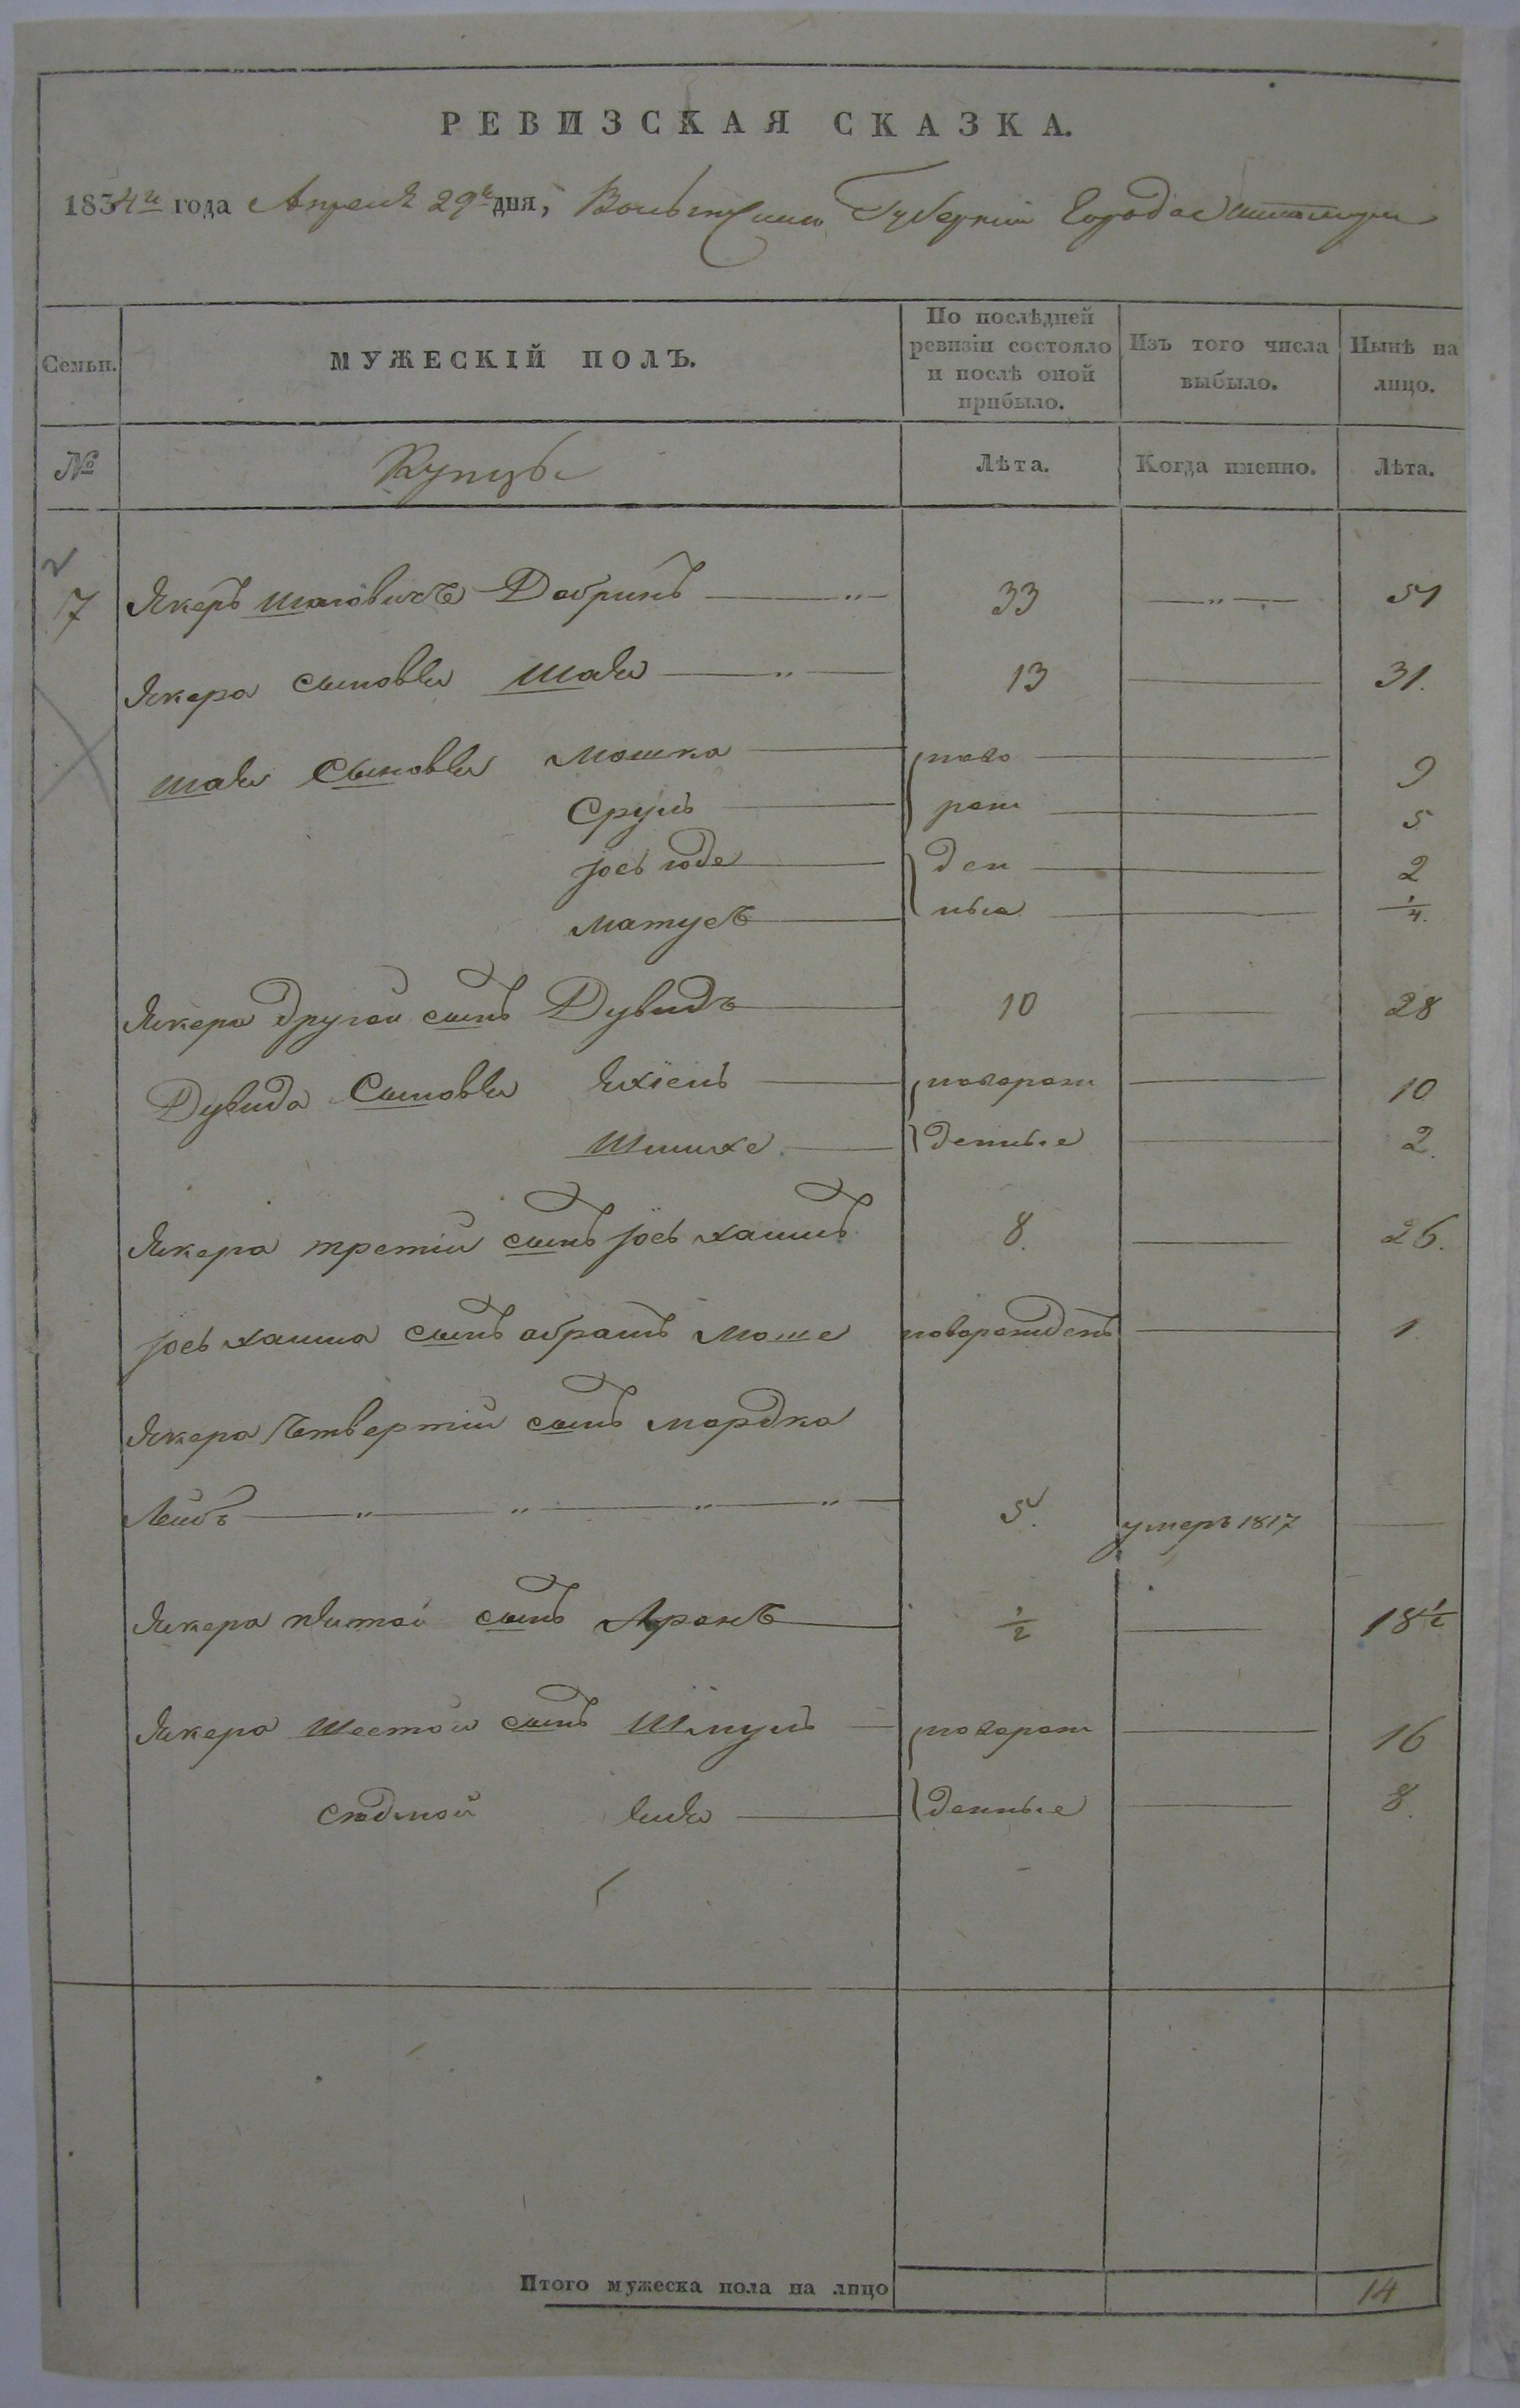 РЕВИЗСКАЯ СКАЗКА.
1834го года Апреля 29го дня, Волынской Губернии Города Житомира
Семьи. МУЖЕСКІЙ ПОЛЪ. По послѣдней ревизіи состояло и послѣ оной прибыло. Изъ того числа выбыло. Нынѣ на лицо.
№ Купцы Лѣта. Когда именно. Лѣта.
7 Янкеръ Шаговичъ Добринъ — 33 — 51
Янкера сыновья Шая — 13 — 31.
Шая Сыновья Мошка — ново — 9
Сруль — рож — 5
Јось юде — ден — 2
Матусъ — ные — 1/4.
Янкера другой сынъ Дувидъ — 10 — 28
Дувида Сыновья Яхіель — новорож — 10
Шимхе — денные — 2.
Янкера третій сынъ Јось хаимъ 8. — 26.
Јось хаима сынъ абрамъ Моше новорожденъ — 1.
Янкера Четвертій сынъ Мордко
Лейбъ — 5. умеръ 1817 —
Янкера пятой сынъ Аронъ — 1/2 — 18 1/2
Янкера Шестой сынъ Шмуль — новорож — 16
Сѣдмой — денные — 8.
Итого мужеска пола на лицо 14